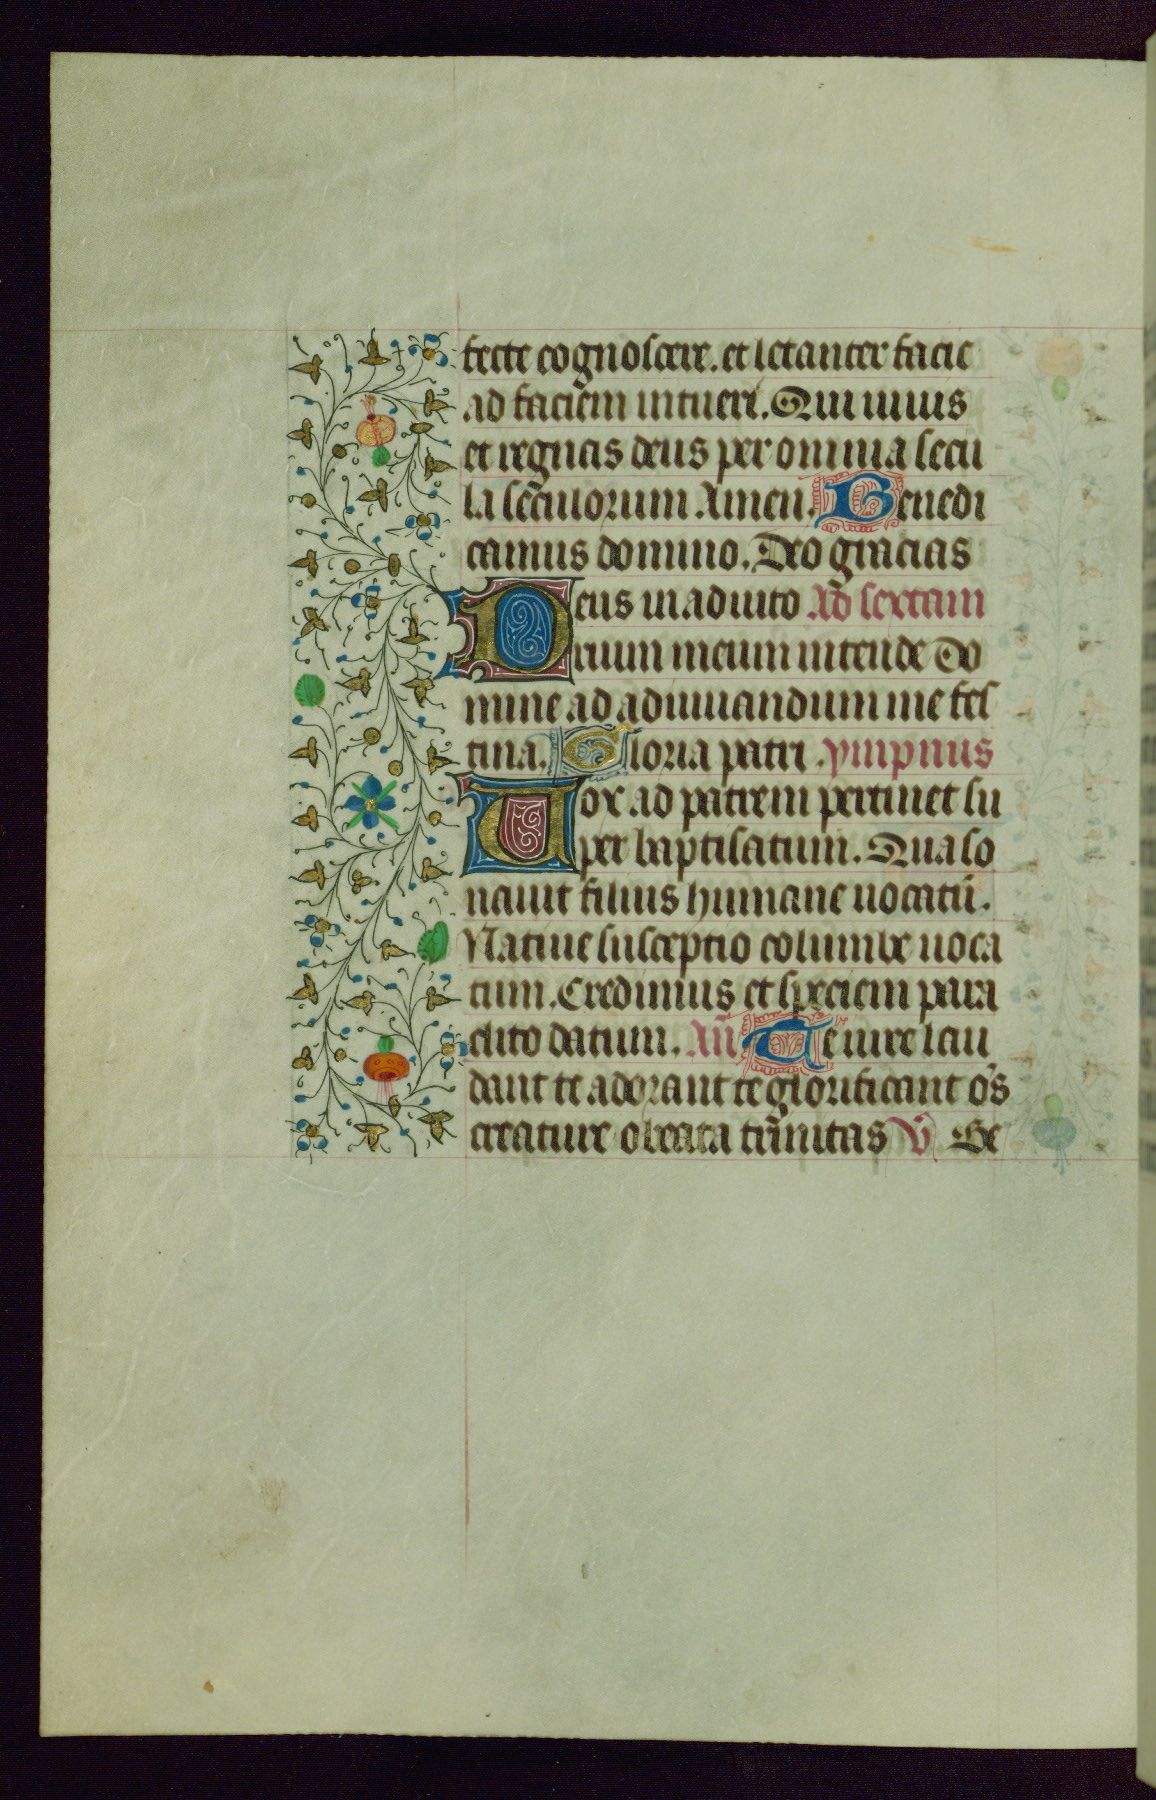 fecte cognoscere. et letanter facie
ad faciem intueri. Qui uiuis
et regnas deus per omnia secu
la seculorum. Amen. Benedi
camus domino. Deo gracias
Deus in adiuto Ad sextam
rium meum intende Do
mine ad adiuuandum me fes
tina. Gloria patri. ympnus
Uox ad patrem pertinet su
per baptisatum. Qua so
nauit filius humane uocatu.
Natiue susceptio columbe uoca
tum. Credimus et speciem para
clito datum. An Te iure lau
dant te adorant te glorificant os
creature o beata trinitas V Be